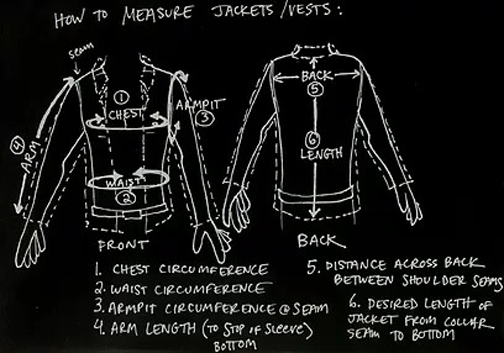 HOW TO MEASURE JACKETS/VESTS:
seam
① CHEST
ARMPIT ③
④ ARM
WAIST ②
BACK ⑤
⑥ LENGTH
FRONT
BACK
1. CHEST CIRCUMFERENCE
2. WAIST CIRCUMFERENCE
3. ARMPIT CIRCUMFERENCE @ SEAM
4. ARM LENGTH (TO STOP OF SLEEVE)
BOTTOM
5. DISTANCE ACROSS BACK
BETWEEN SHOULDER SEAMS
6. DESIRED LENGTH OF
JACKET FROM COLLAR
SEAM TO BOTTOM